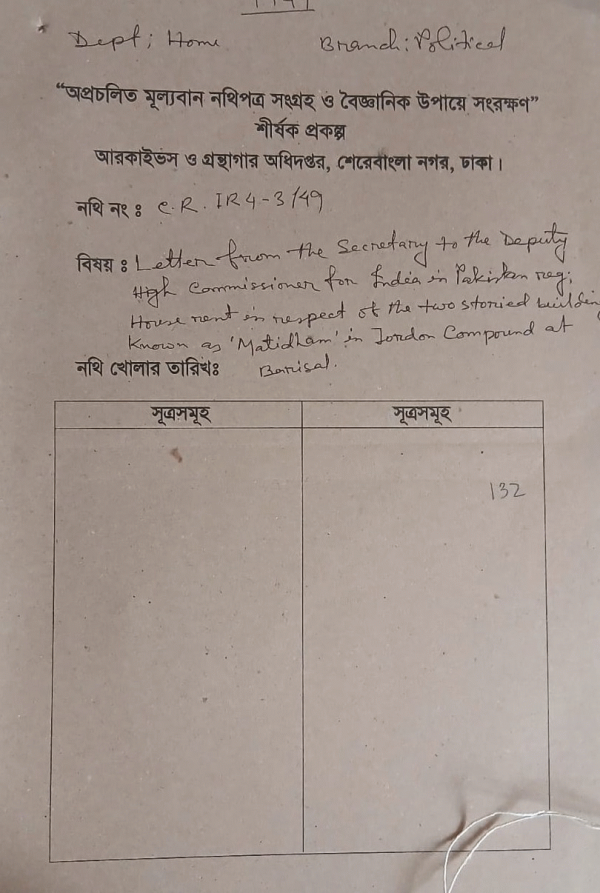 Dept; Home Branch: Political
“অপ্রচলিত মূল্যবান নথিপত্র সংগ্রহ ও বৈজ্ঞানিক উপায়ে সংরক্ষণ”
শীর্ষক প্রকল্প
আরকাইভস ও গ্রন্থাগার অধিদপ্তর, শেরেবাংলা নগর, ঢাকা।
নথি নং ঃ C.R. IR4-3/49
বিষয় ঃ Letter from the Secretary to the Deputy
High Commissioner for India in Pakistan reg;
House rent in respect of the two storied buildin
Known as 'Matidham' in Jordon Compound at
নথি খোলার তারিখঃ Barisal.
সূত্রসমূহ সূত্রসমূহ
132